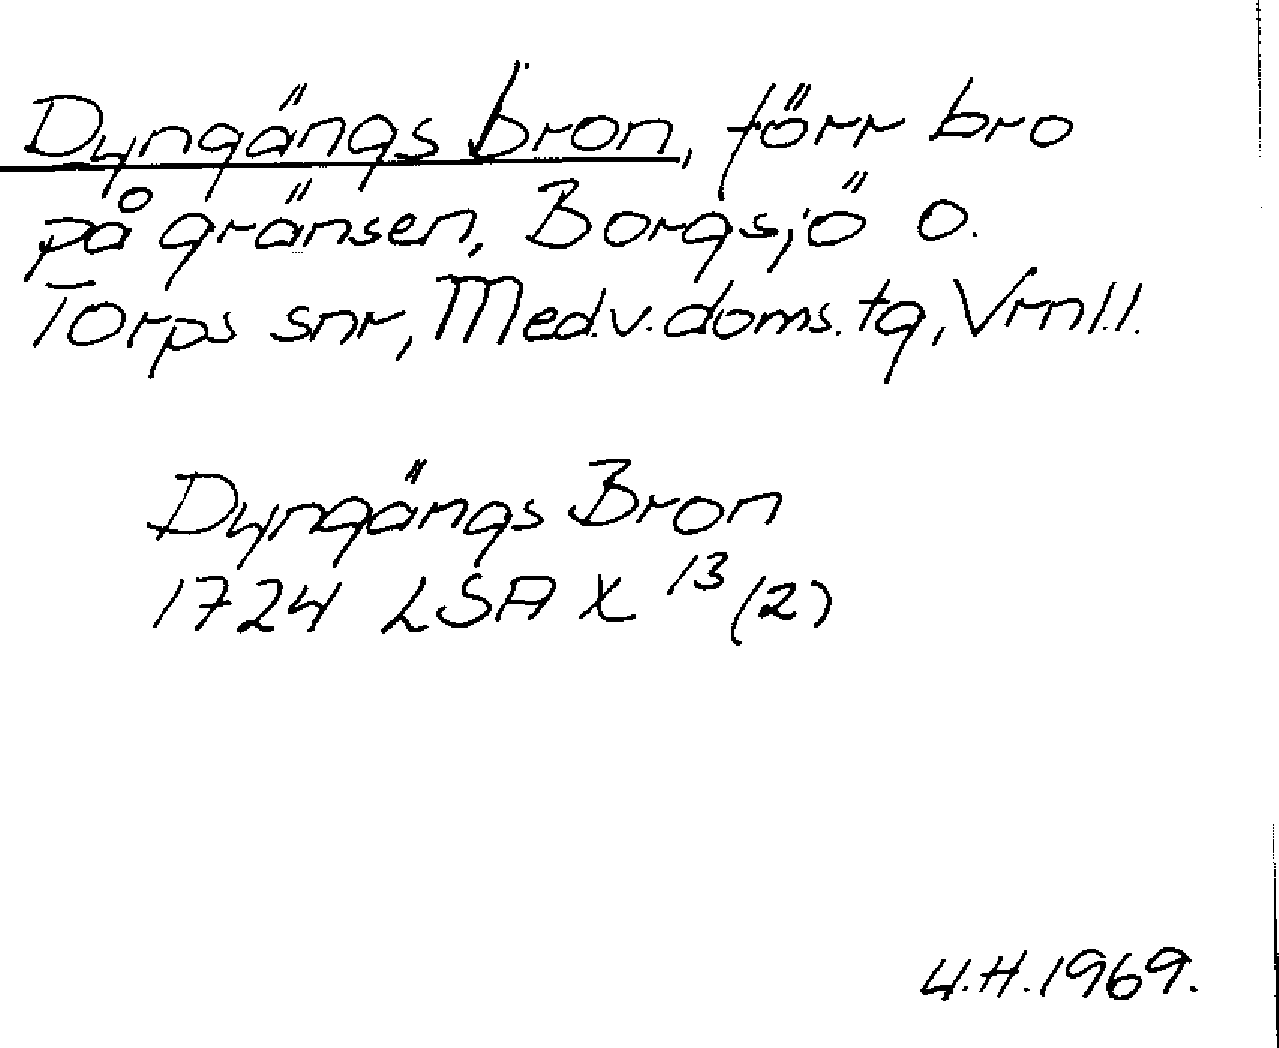 Dyngängs bron, förr bro
på gränsen, Borgsjö o.
Torps snr, Med.v.doms.tg, Vrnl.l.
Dyngängs Bron
1724 LSA X 13 (2)
4.H.1969.